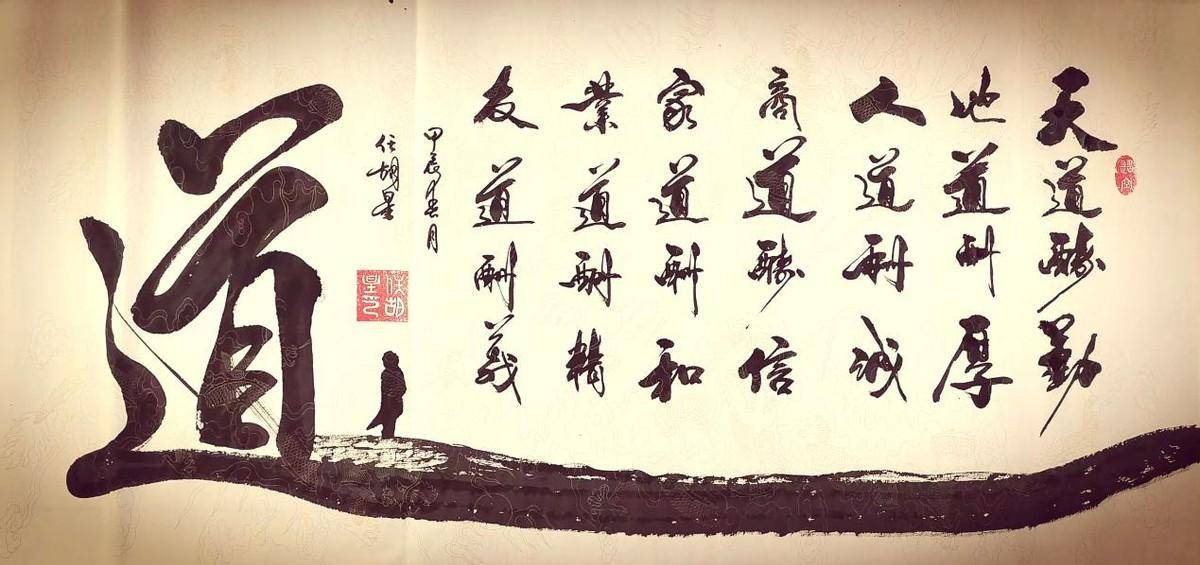 天道酬勤
地道酬厚
人道酬诚
商道酬信
家道酬和
業道酬精
友道酬義
甲辰春月
任胡星
道